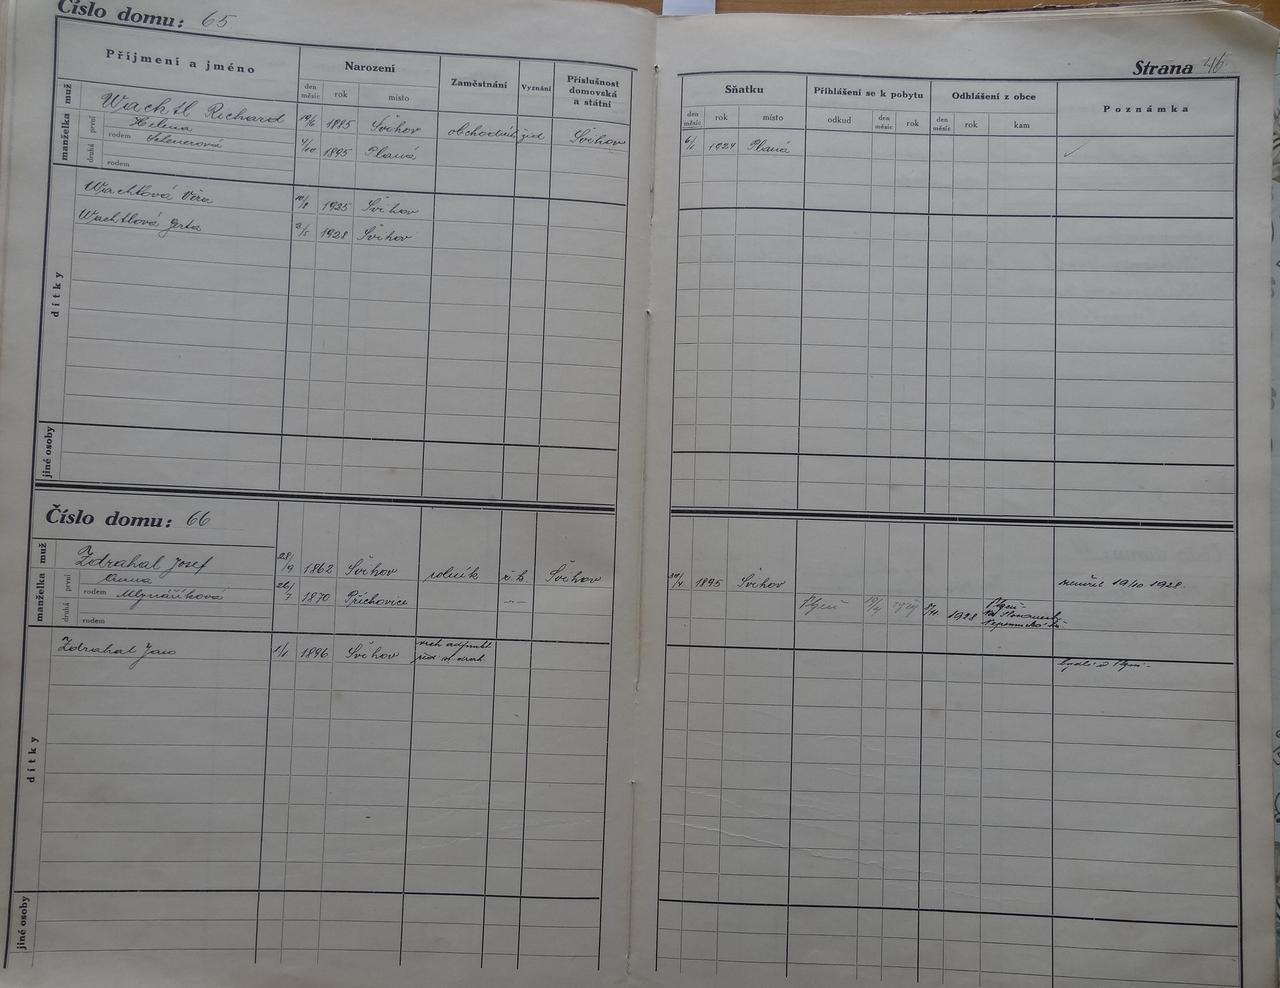 Číslo domu: 65
Strana 46
Příjmení a jméno
Narození
den měsíc
rok
místo
Zaměstnání
Vyznání
Příslušnost domovská a státní
Sňatku
den měsíc
rok
místo
Přihlášení se k pobytu
odkud
den měsíc
rok
Odhlášení z obce
den měsíc
rok
kam
Poznámka
muž
Wachtl Richard 19/6 1885 Švihov obchodník žid Švihov 6/1 1924 Planá
manželka
první
Helena
rodem
4/10 1895 Planá
druhá
rodem
dítky
Wachtlová Věra 10/8 1925 Švihov
Wachtlová Gerta 2/5 1928 Švihov
jiné osoby
Číslo domu: 66
muž
Zdrahal Josef 28/9 1862 Švihov rolník ř. k. Švihov 1895 Švihov zemřel 19/10 1928.
manželka
první
Anna
rodem Mlynaříková 26/7 1870 Příchovice -"- Plzeň 19/4 1928 Plzeň
druhá
rodem
dítky
Zdrahal Jan 1/1 1896 Švihov bydlí v Plzni -
jiné osoby